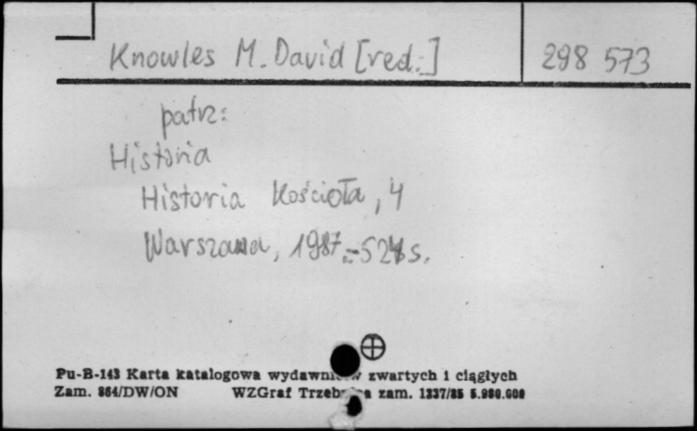 Knowles M. David [red.:] 298 573
patrz:
Historia
Historia Kościoła, 4
Warszawa, 1987.- s.
Pu-B-143 Karta katalogowa zwartych i ciągłych
Zam. 864/DW/ON WZGraf zam. 1337/85 5.980.000